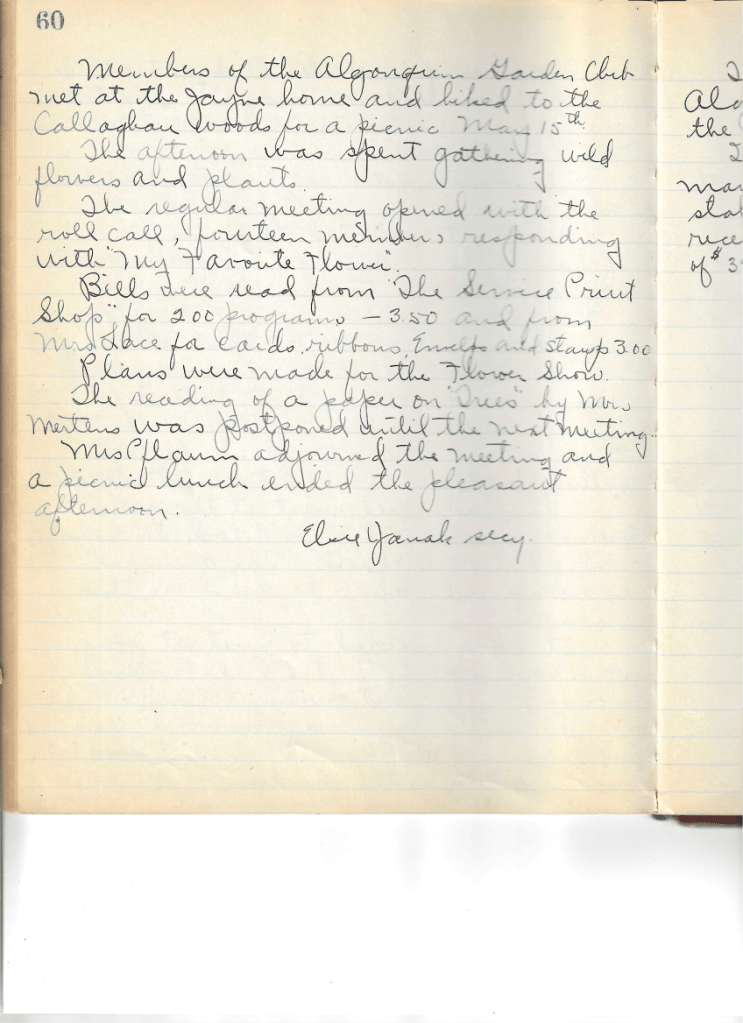 60
Members of the Algonquin Garden Club
met at the Jayne home and hiked to the
Callaghan woods for a picnic May 15th.
The afternoon was spent gathering wild
flowers and plants.
The regular meeting opened with the
roll call, fourteen members responding
with "My Favorite Flower".
Bills were read from "The Service Print
Shop" for 200 programs – 3.50 and from
Mrs. for cards, ribbons, Envelps and stamps 3.00
Plans were made for the Flower Show.
The reading of a paper on "Trees" by Mrs.
Mertens was postponed until the next meeting.
Mrs Pflaum adjourned the meeting and
a picnic lunch ended the pleasant
afternoon.
Elsie Yanak secy.
the
of $3